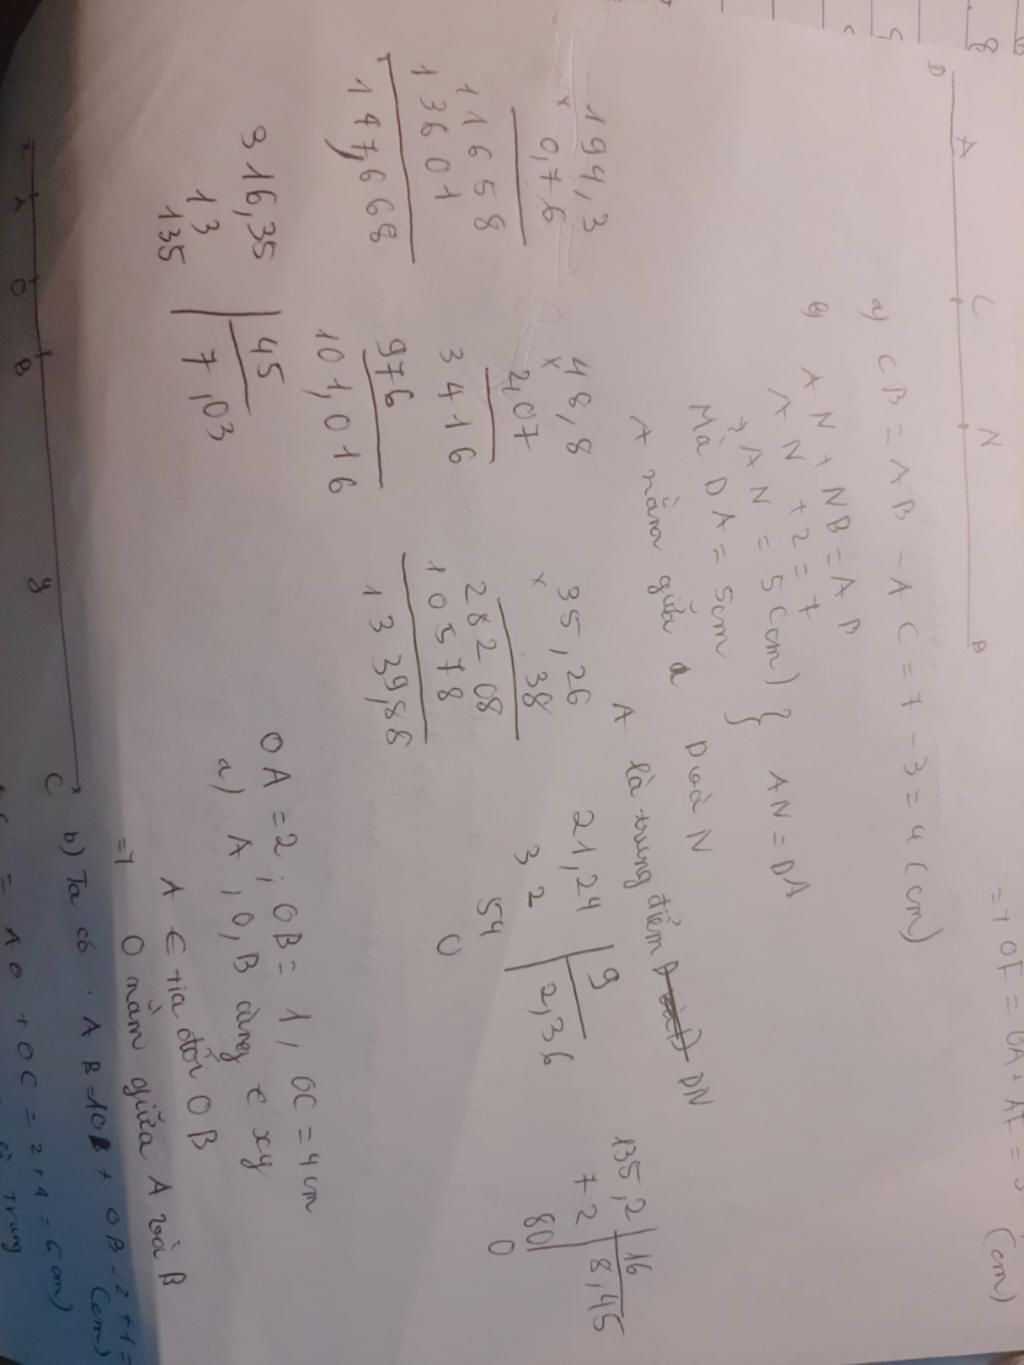 = 7 OF = OA + AF = 
(cm)
D A C N B
a) CB = AB - AC = 7 - 3 = 4 (cm)
b) AN + NB = AB
AN + 2 = 7
AN = 5 (cm) } AN = DA
Mà DA = 5cm
A nằm giữa D và N
A là trung điểm DN
194,3
× 0,76
11658
13601
147,668
48,8
× 2,07
3416
976
101,016
35,26
× 38
28208
10578
1339,88
21,24 | 9
3 2 2,36
54
0
135,2 | 16
7 2 8,45
80
0
316,35 | 45
13 7,03
135
OA = 2 ; OB = 1, OC = 4cm
a) A, O, B cùng ∈ xy
A ∈ tia đối OB
=7 O nằm giữa A và B
x A O B y C
b) Ta có : AB = OB + OB = 2 + 1 =
(cm)
= AO + OC = 2 + 4 = 6 cm)
trung